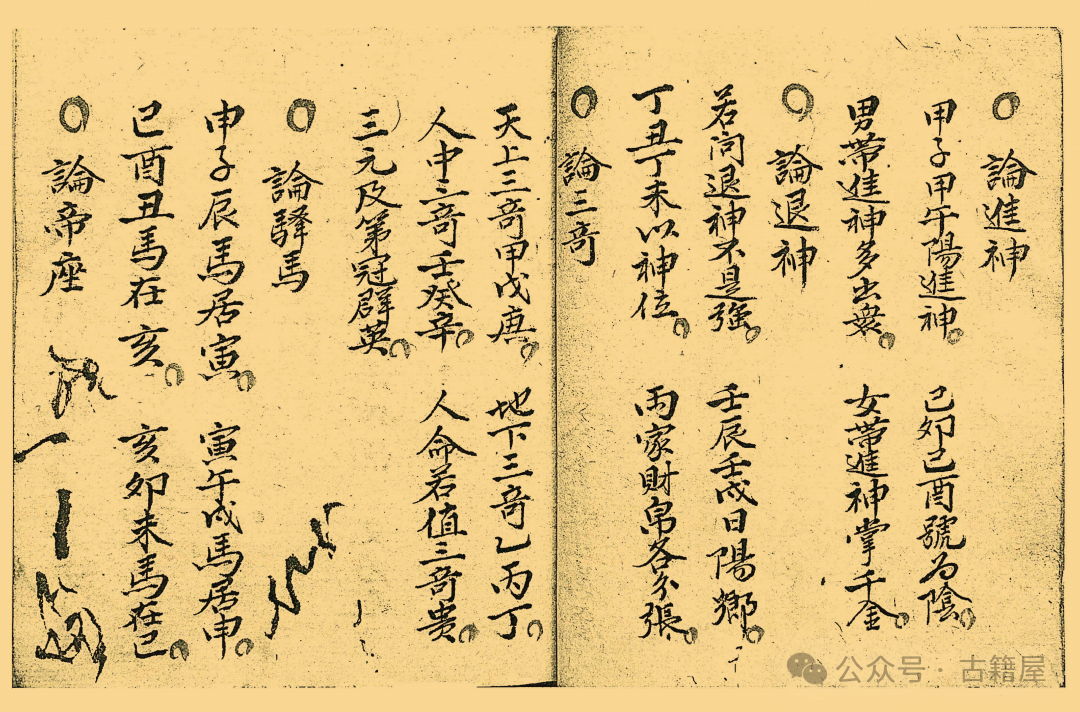 ○論進神
甲子甲午陽進神。己卯己酉號为陰。
男帶進神多出衆。女帶進神掌千金。
○論退神
若问退神不是强。壬辰壬戌日陽鄉。
丁丑丁未以神位。両家財帛各分張。
○論三奇
天上三奇甲戊庚。地下三奇乙丙丁。
人中三奇壬癸辛。人命若值三奇贵。
三元及第冠群英。
○論驛馬
申子辰馬居寅。寅午戌馬居申。
巳酉丑馬在亥。亥卯未馬在巳。
○論帝座
公众号·古籍屋